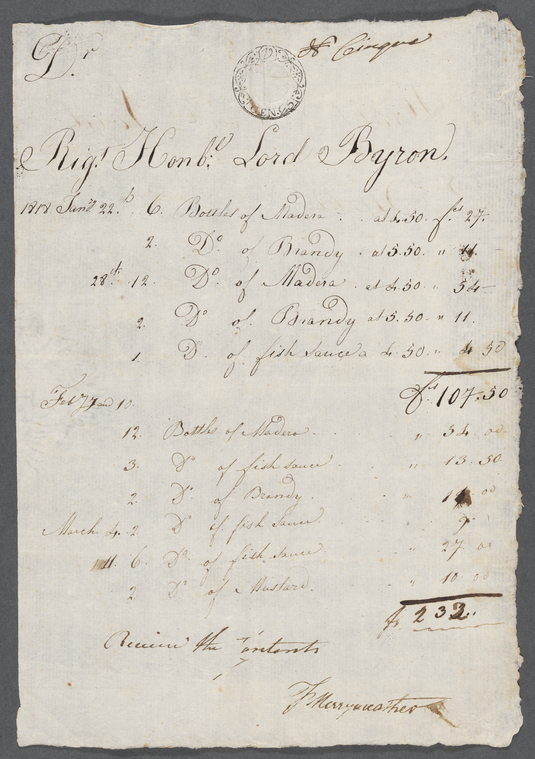 Dr
Cinque
Rigt Honbl Lord Byron.
1818 Jany 22. 6. Bottles of Madera . . at 4.50. frs 27.
2. Do of Brandy . at 5.50. " 11.
28th. 12. Do of Madera . at 4.50 " 54
2. Do of. Brandy at 5.50. " 11.
1 Do. of fish Sauce a 4.50. " 4 50
frs. 107.50
Feby 7 and 10.
12 Bottles of Madera . . " 54. 00
3. Do of fish sauce . . " 13.50
2 Do. of Brandy. . . " 11. 00
March 4. 2 Do of fish Sauce . . " 9
11. 6. Do. of fish Sauce . . " 27. 00
2 Do of Mustard. . . " 10. 00
fr. 232..
Receive the Contents
F Merryweather